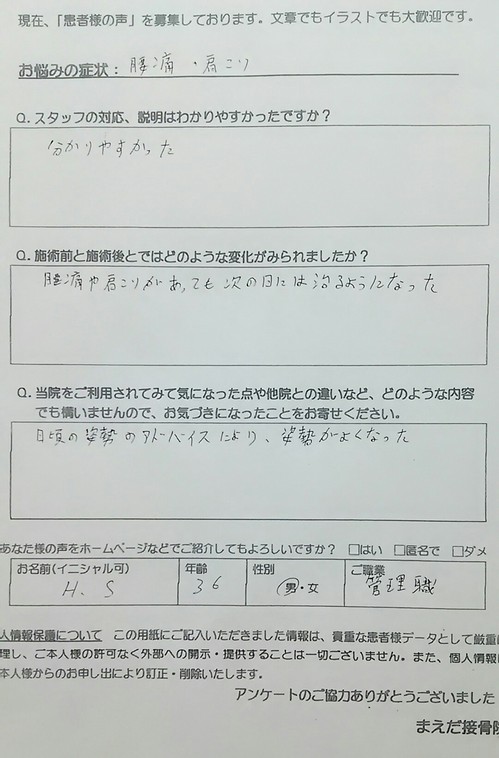 現在、「患者様の声」を募集しております。文章でもイラストでも大歓迎です。
お悩みの症状: 腰痛・肩こり
Q. スタッフの対応、説明はわかりやすかったですか？
分かりやすかった
Q. 施術前と施術後とではどのような変化がみられましたか？
腰痛や肩こりがあっても次の日には治るようになった
Q. 当院をご利用されてみて気になった点や他院との違いなど、どのような内容
でも情いませんので、お気づきになったことをお寄せください。
日頃の姿勢のアドバイスにより、姿勢がよくなった
あなた様の声をホームページなどでご紹介してもよろしいですか？ □はい □匿名で □ダメ
お名前(イニシャル可) 年齢 性別 ご職業
H.S 36 男・女 管理職
人情報保護について この用紙にご記入いただきました情報は、貴重な患者様データとして厳重に
理し、ご本人様の許可なく外部への開示・提供することは一切ございません。また、個人情報は
本人様からのお申し出により訂正・削除いたします。
アンケートのご協力ありがとうございました
まえだ接骨院